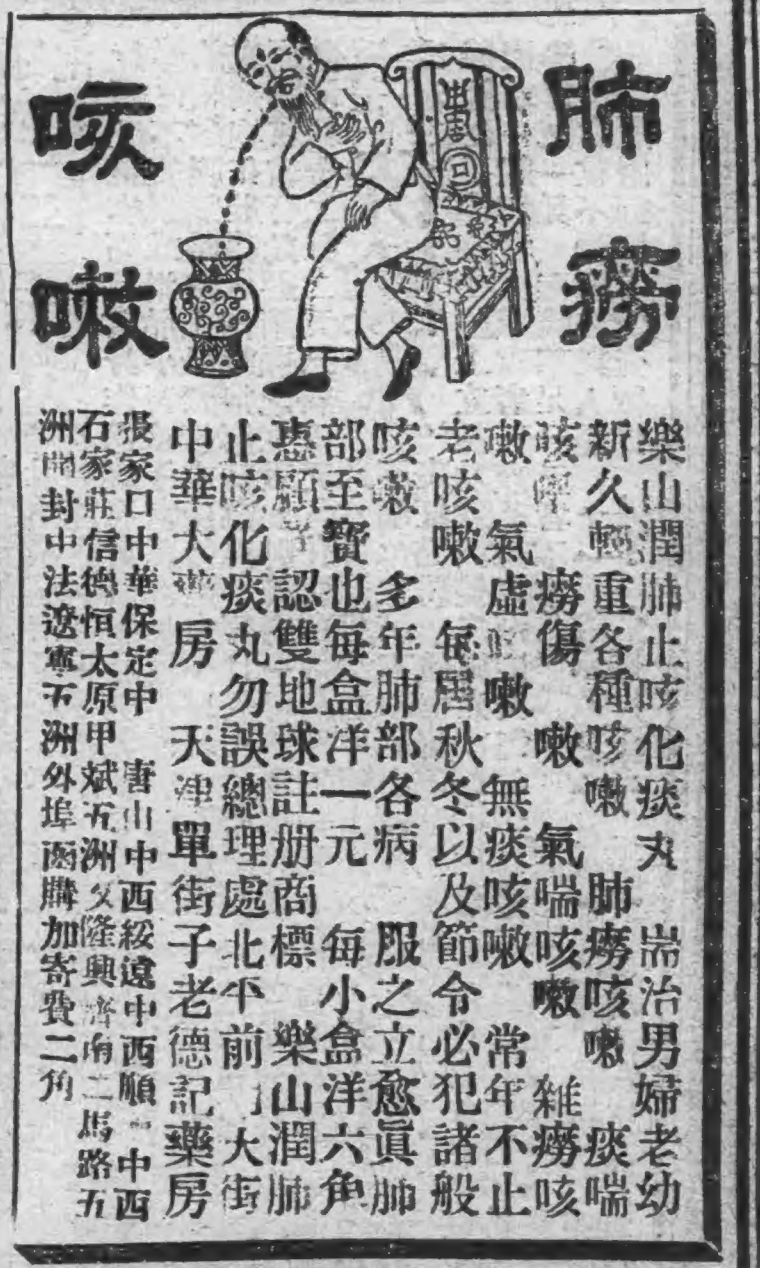 肺癆
咳嗽
樂山潤肺止咳化痰丸 耑治男婦老幼
新久輕重各種咳嗽 肺癆咳嗽 痰喘
咳 癆傷 嗽 氣喘咳嗽 雜癆咳
嗽 氣虛 嗽 無痰咳嗽 常年不止
老咳嗽 每居秋冬以及節令必犯諸般
咳嗽 多年肺部各病 服之立愈眞肺
部至寶也每盒洋一元 每小盒洋六角
惠顧 認雙地球註册商標 樂山潤肺
止咳化痰丸勿誤總理處北平前 大街
中華大藥房 天津單街子老德記藥房
張家口中華保定中 唐山中西綏遠中西順 中西
石家莊信德恒太原甲斌五洲 隆興濟南二馬路五
洲開封中法遼寧五洲外埠函購加寄費二角